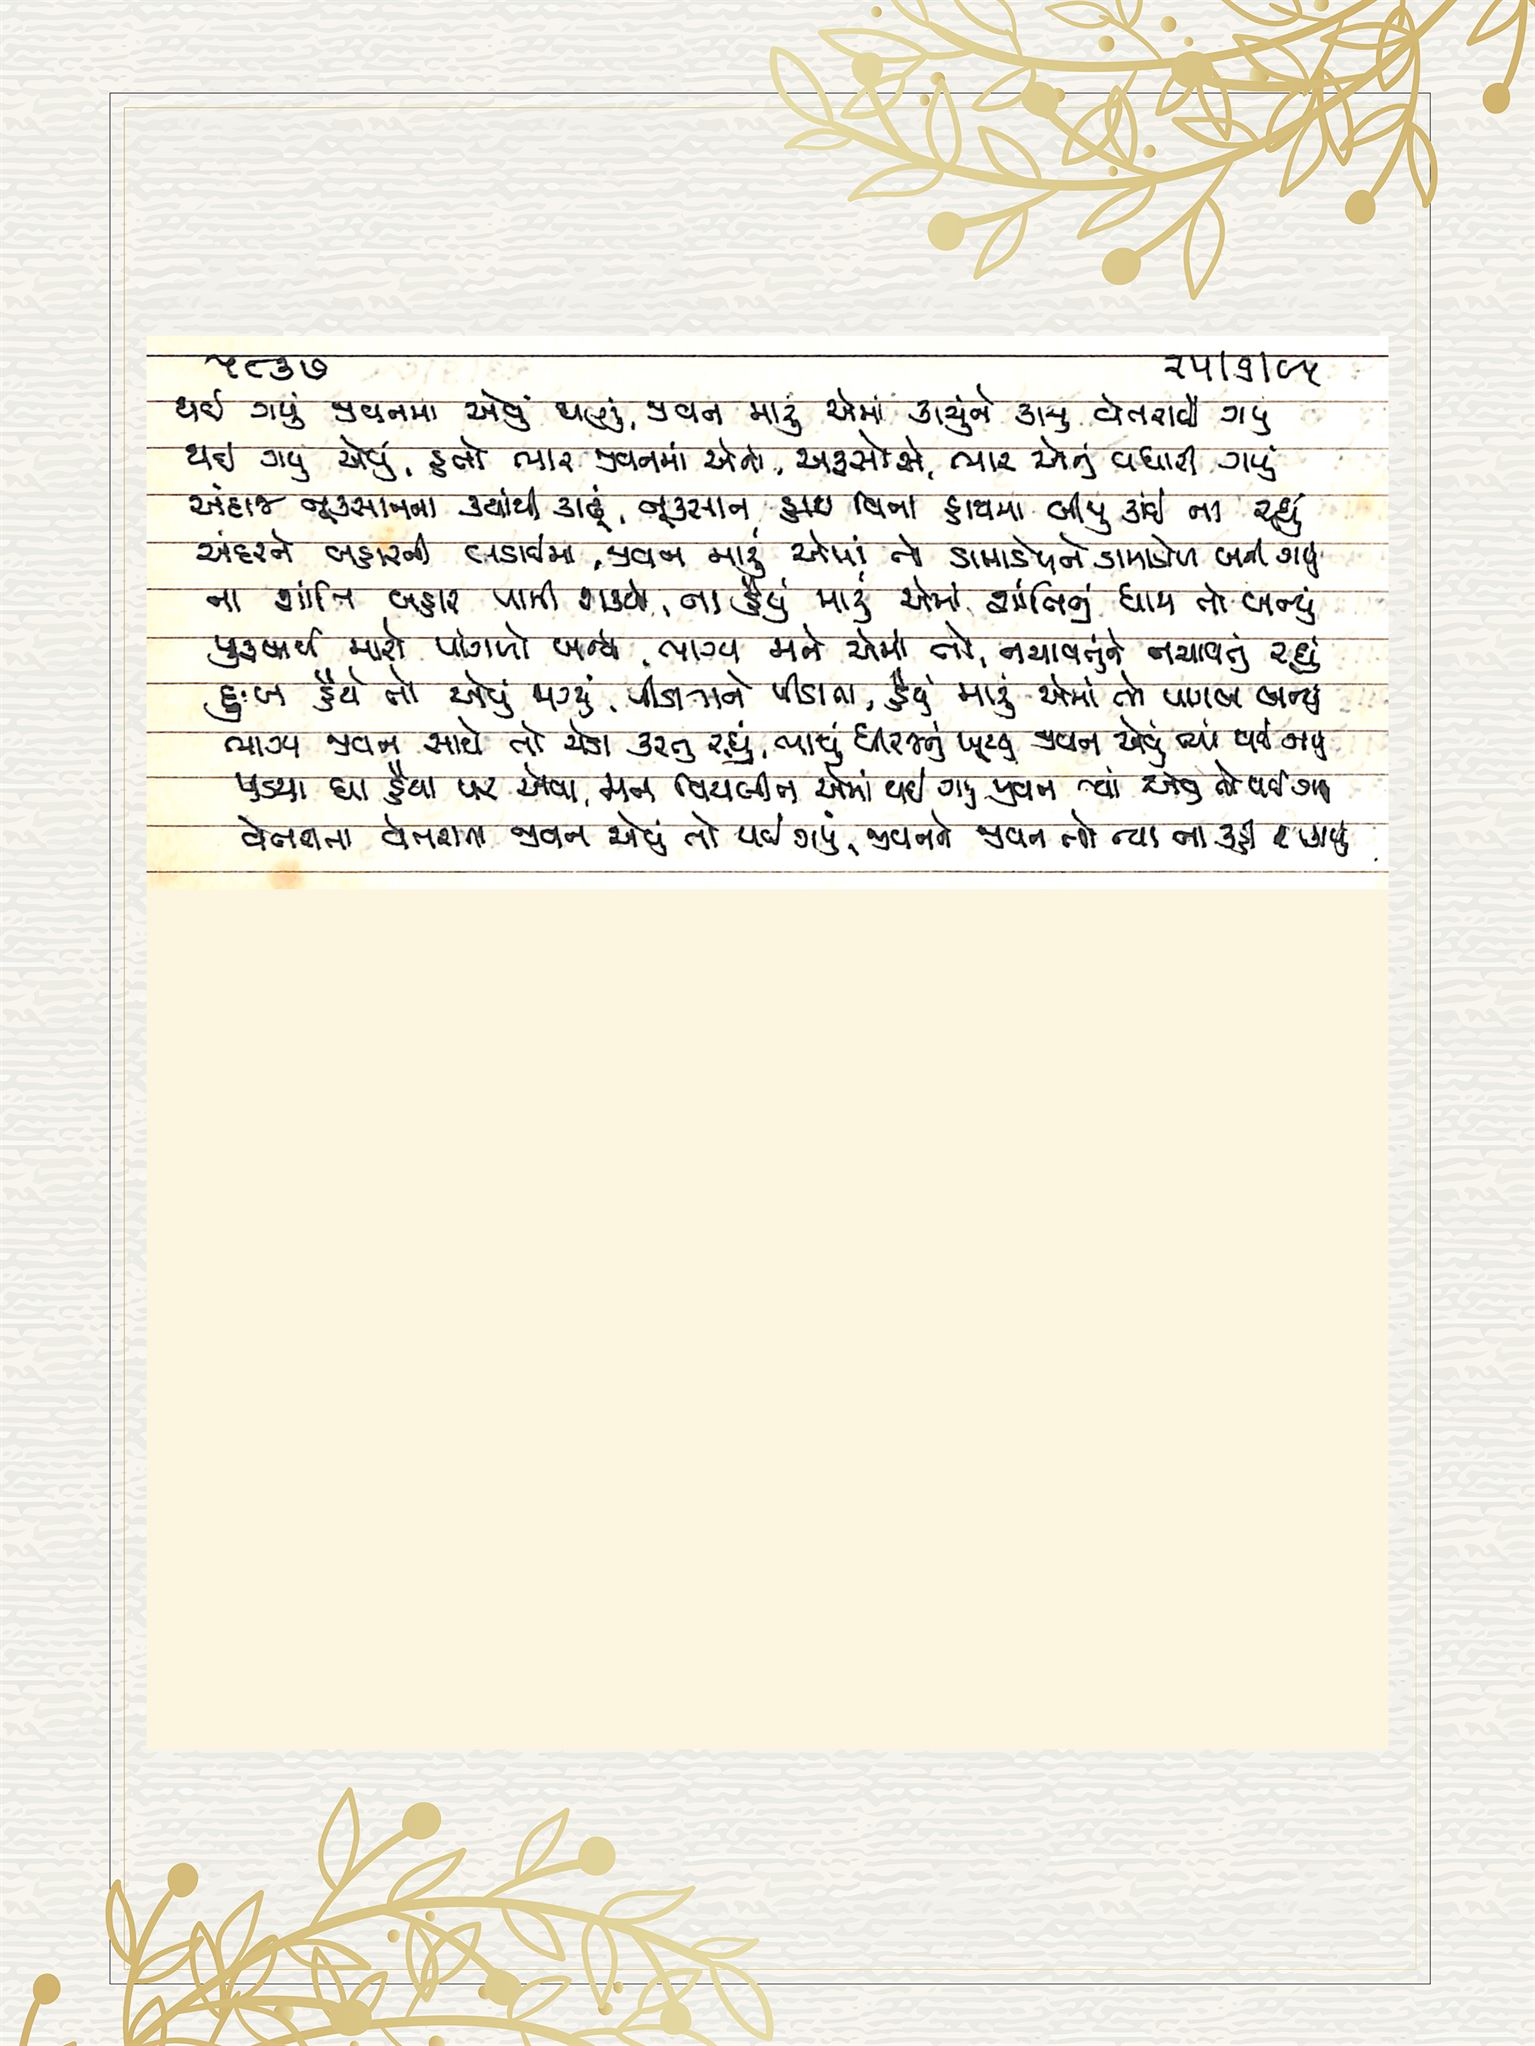 ૫૮૩૭ ૨૫/૭/૯૫
થઈ ગયું જીવનમા એવું ઘણું, જીવન મારું એમાં કાચુંને કાચુ વેતરાઈ ગયુ
થઇ ગયુ એવું, હતો ભાર જીવનમાં એનો, અફસોસે, ભાર એનું વધારી ગયું
અંદાજ નૂકસાનના ક્યાંથી કાઢું, નૂકસાન વિના હાથમા બીજુ કાંઈ ના રહ્યું
અંદરને બહારની લડાઈમા, જીવન મારું એમાં તો ડામાડોળને ડામાડોળ બની ગયુ
ના શાંતિ બહાર પામી શક્યો, ના હૈયું મારું એમાં શાંતિનું ધામ તો બન્યું
પુરુષાર્થ મારો પાંગળો બન્યો, ભાગ્ય મને એમાં તો, નચાવતુંને નચાવતું રહ્યું
દુઃખ હૈયે તો એવું જાગ્યું, પીડા મને પીડાતા, હૈયું મારું એમાં તો પાગલ બન્યુ
ભાગ્ય જીવન સાથે તો ચેડા કરતુ રહ્યું, ભાથું ધીરજનું ખૂટ્યુ જીવન એવું ત્યાં થઈ ગયુ
પડયા ઘા હૈયા પર એવા, મન વિચલીત એમાં થઇ ગયુ જીવન ત્યાં એવુ તો થઈ ગયુ
વેતરાતા વેતરાતા જીવન એવું તો થઈ ગયું, જીવનને જીવન તો ત્યા ના કહી